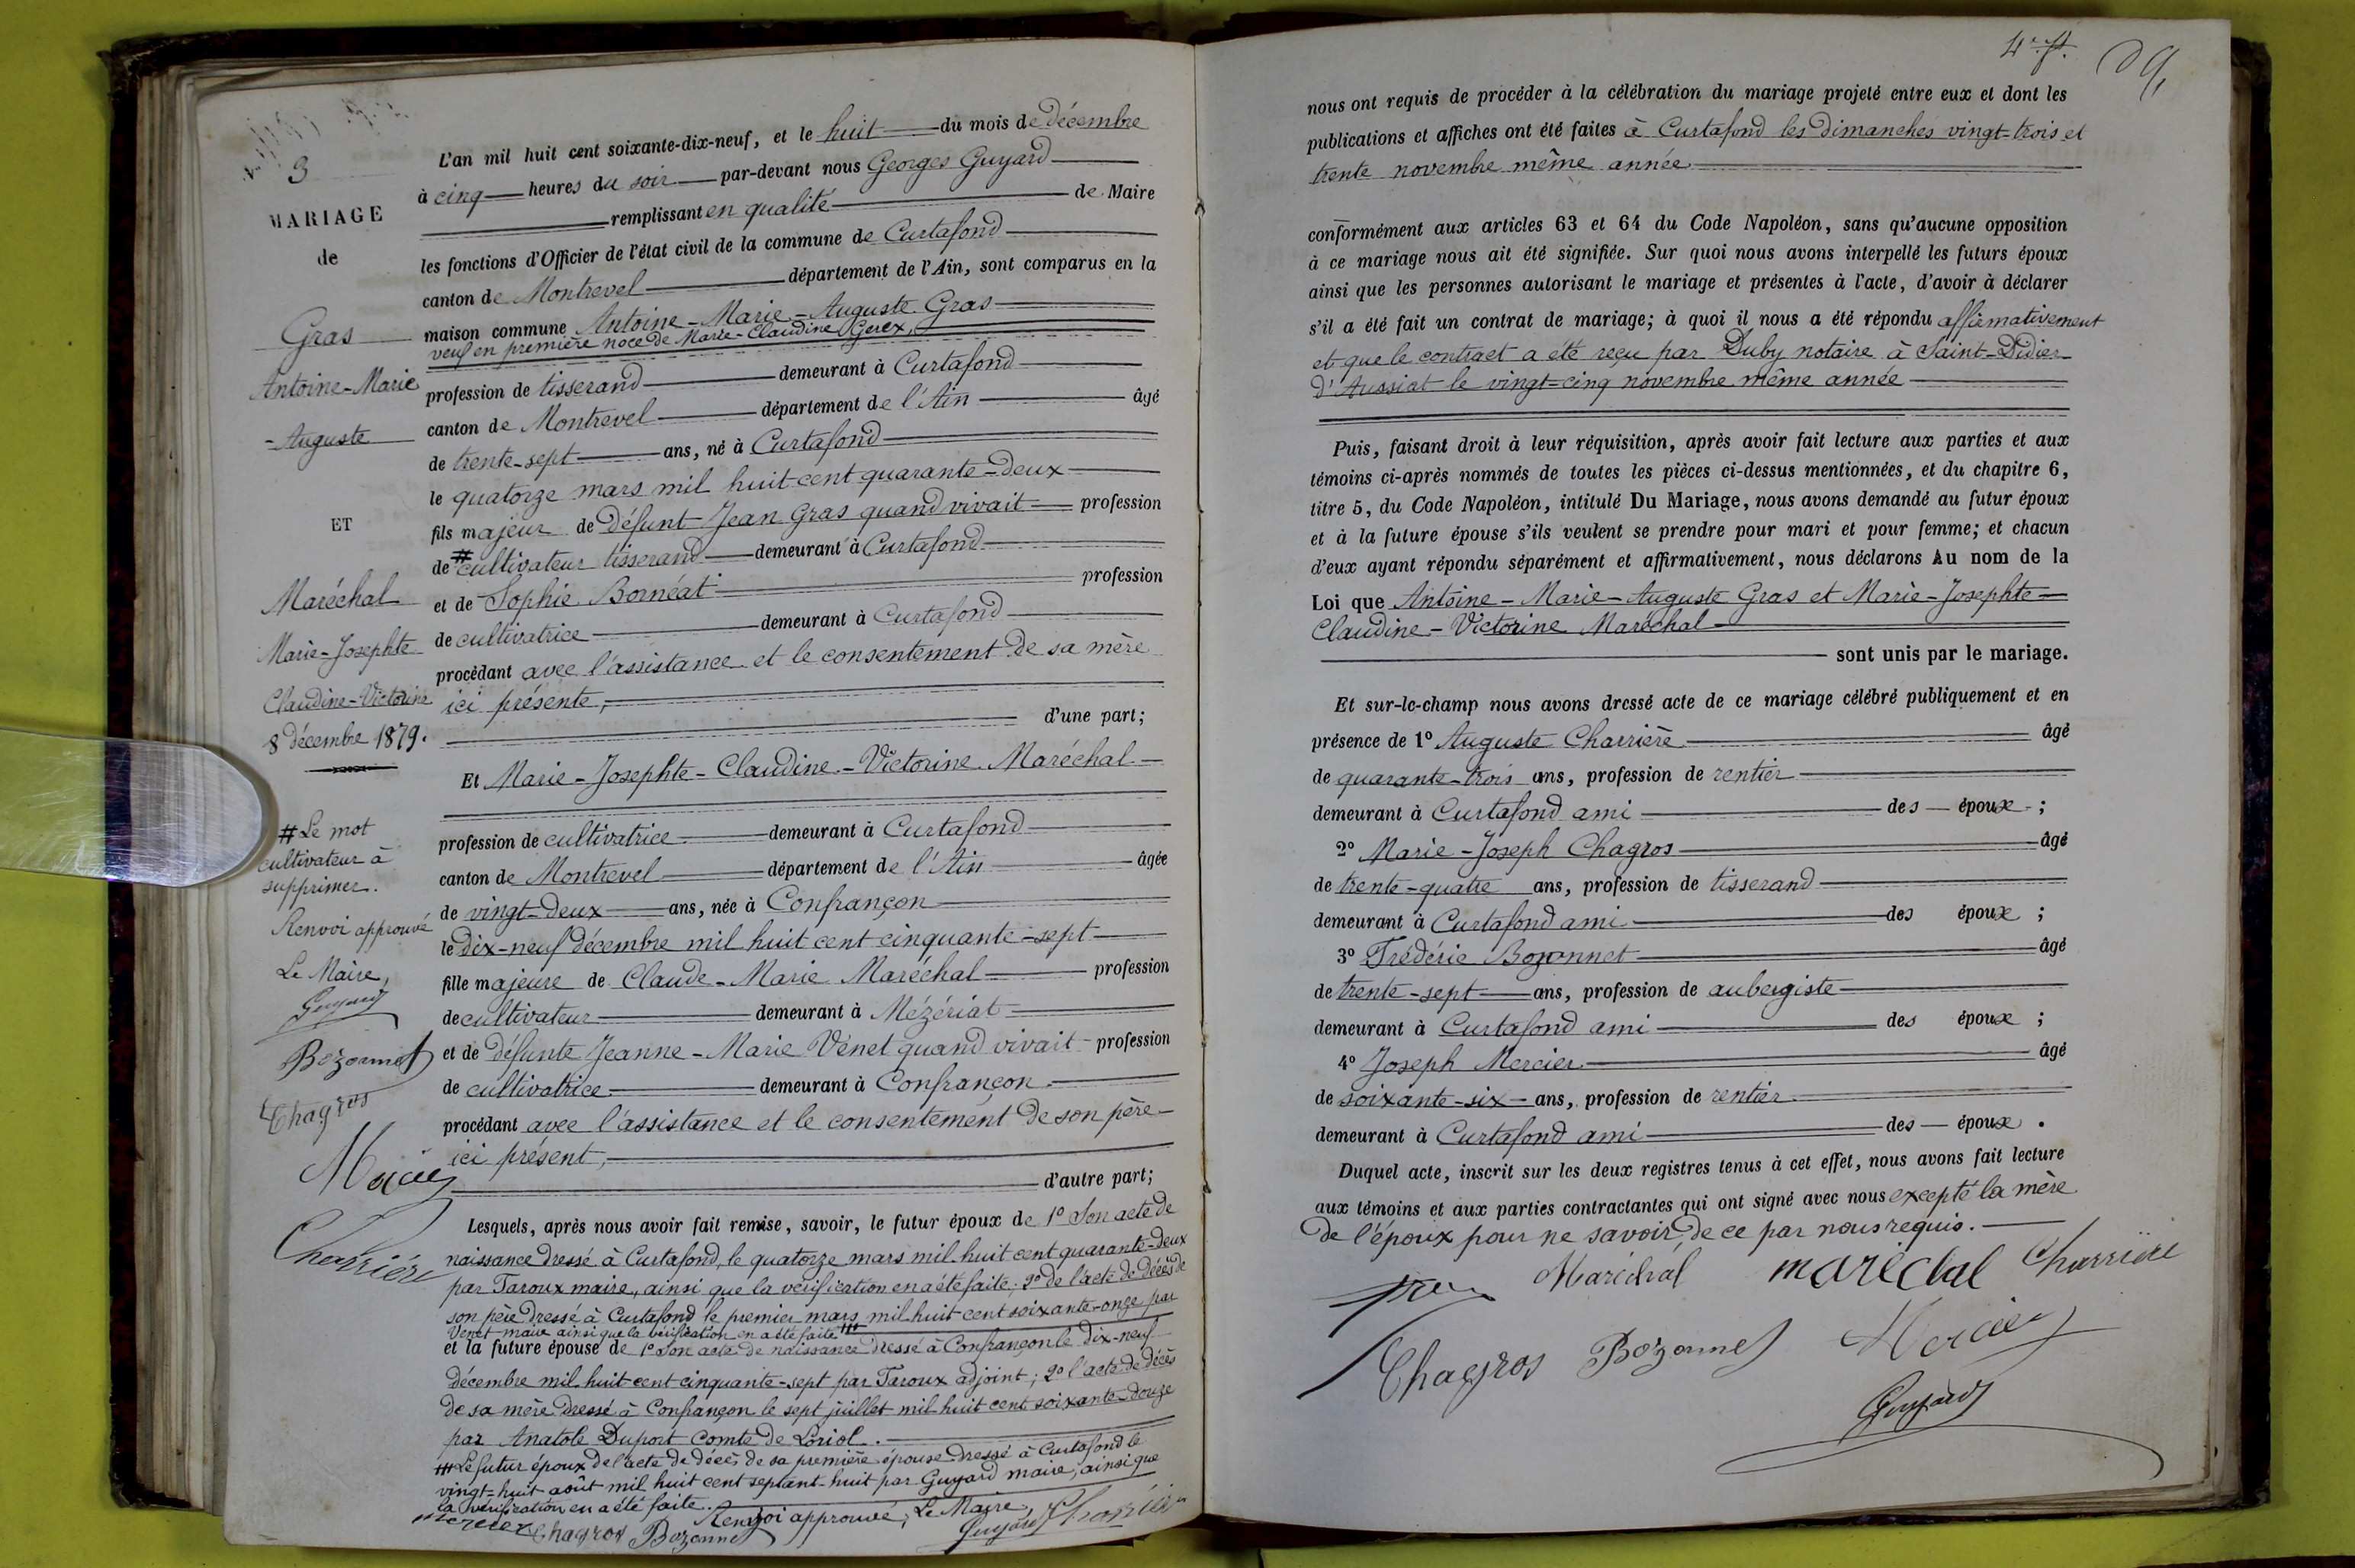 3
MARIAGE
de
Gras
Antoine-Marie
-Auguste
ET
Maréchal
Marie-Josephte
Claudine-Victorine
8 décembre 1879.
# Le mot
cultivateur à
supprimer.
Renvoi approuvé
Le Maire,
Guyard
Bozonnet
Chagros
Mercier
Charrière
L'an mil huit cent soixante-dix-neuf, et le huit du mois de décembre
à cinq heures du soir par-devant nous Georges Guyard
remplissant en qualité de Maire
les fonctions d'Officier de l'état civil de la commune de Curtafond
canton de Montrevel département de l'Ain, sont comparus en la
maison commune Antoine-Marie-Auguste Gras
veuf en première noce de Marie-Claudine Gerex,
profession de tisserand demeurant à Curtafond
canton de Montrevel département de l'Ain âgé
de trente-sept ans, né à Curtafond
le quatorze mars mil huit cent quarante-deux
fils majeur de Défunt Jean Gras quand vivait profession
de # cultivateur tisserand demeurant à Curtafond
et de Sophie Bornéat profession
de cultivatrice demeurant à Curtafond
procédant avec l'assistance et le consentement de sa mère
ici présente,
d'une part;
Et Marie-Josephte-Claudine-Victorine Maréchal
profession de cultivatrice demeurant à Curtafond
canton de Montrevel département de l'Ain âgée
de vingt-deux ans, née à Confrançon
le dix-neuf décembre mil huit cent cinquante-sept
fille majeure de Claude-Marie Maréchal profession
de cultivateur demeurant à Mézériat
et de défunte Jeanne-Marie Vénet quand vivait profession
de cultivatrice demeurant à Confrançon
procédant avec l'assistance et le consentement de son père
ici présent,
d'autre part;
Lesquels, après nous avoir fait remise, savoir, le futur époux de 1º Son acte de
naissance dressé à Curtafond, le quatorze mars mil huit cent quarante-deux
par Taroux maire, ainsi que la vérification en a été faite; 2º de l'acte de décès de
son père dressé à Curtafond le premier mars mil huit cent soixante-onze par
Venet maire ainsi que la vérification en a été faite ###
et la future épouse de 1º Son acte de naissance dressé à Confrançon le dix-neuf
décembre mil huit cent cinquante-sept par Taroux adjoint; 2º l'acte de décès
de sa mère dressé à Confrançon le sept juillet mil huit cent soixante-douze
par Anatole Duport comte de Loriol.
### Le futur époux de l'acte de décès de sa première épouse dressé à Curtafond le
vingt-huit août mil huit cent septant-huit par Guyard maire, ainsi que
la vérification en a été faite. Renvoi approuvé, Le Maire,
Mercier Chagros Bozonnet Guyard Charrière
4e f.
nous ont requis de procéder à la célébration du mariage projeté entre eux et dont les
publications et affiches ont été faites à Curtafond les Dimanches vingt-trois et
trente novembre même année
conformément aux articles 63 et 64 du Code Napoléon, sans qu'aucune opposition
à ce mariage nous ait été signifiée. Sur quoi nous avons interpellé les futurs époux
ainsi que les personnes autorisant le mariage et présentes à l'acte, d'avoir à déclarer
s'il a été fait un contrat de mariage; à quoi il nous a été répondu affirmativement
et que le contract a été reçu par Duby notaire à Saint-Didier
d'Aussiat le vingt-cinq novembre même année
Puis, faisant droit à leur réquisition, après avoir fait lecture aux parties et aux
témoins ci-après nommés de toutes les pièces ci-dessus mentionnées, et du chapitre 6,
titre 5, du Code Napoléon, intitulé Du Mariage, nous avons demandé au futur époux
et à la future épouse s'ils veulent se prendre pour mari et pour femme; et chacun
d'eux ayant répondu séparément et affirmativement, nous déclarons Au nom de la
Loi que Antoine-Marie-Auguste Gras et Marie-Josephte-
Claudine-Victorine Maréchal
sont unis par le mariage.
Et sur-le-champ nous avons dressé acte de ce mariage célébré publiquement et en
présence de 1º Auguste Charrière âgé
de quarante-trois ans, profession de rentier
demeurant à Curtafond ami des époux;
2º Marie-Joseph Chagros âgé
de trente-quatre ans, profession de tisserand
demeurant à Curtafond ami des époux;
3º Frédéric Bozonnet âgé
de trente-sept ans, profession de aubergiste
demeurant à Curtafond ami des époux;
4º Joseph Mercier âgé
de soixante-six ans, profession de rentier
demeurant à Curtafond ami des époux.
Duquel acte, inscrit sur les deux registres tenus à cet effet, nous avons fait lecture
aux témoins et aux parties contractantes qui ont signé avec nous excepté la mère
de l'époux pour ne savoir, de ce par nous requis.
Maréchal maréchal Charrière
Chagros Bozonnet Mercier
Guyard